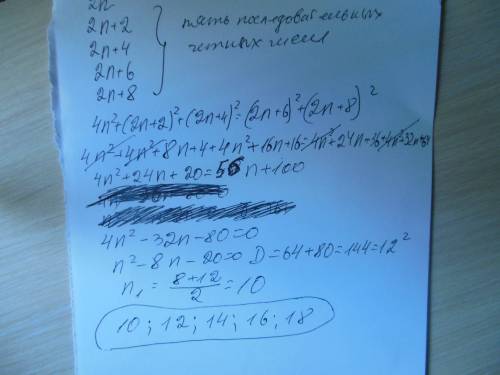 2n
2n+2
2n+4
2n+6
2n+8
пять последовательных
четных чисел
4n²+(2n+2)²+(2n+4)²=(2n+6)²+(2n+8)²
4n²+4n²+8n+4+4n²+16n+16=4n²+24n+36+4n²+32n+64
4n²+24n+20=56n+100
4n²-32n-80=0
n²-8n-20=0 D=64+80=144=12²
n₁=(8+12)/2=10
10; 12; 14; 16; 18